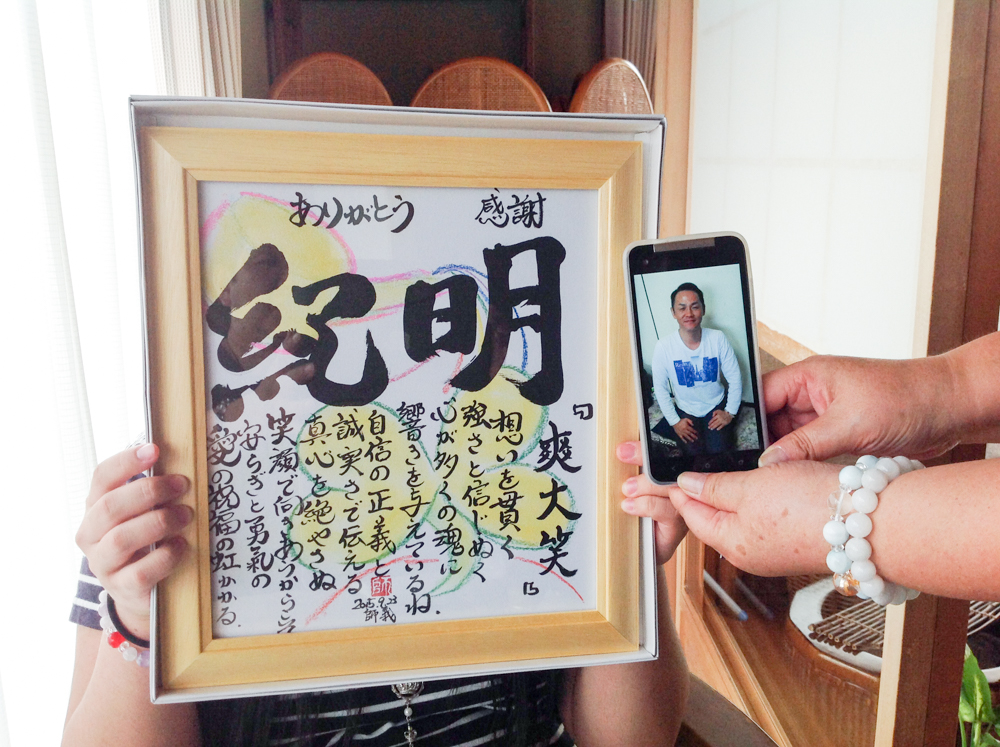 ありがとう 感謝
紀明
「爽大笑」
想いを貫く
強さと信じぬく
心が多くの魂に
響きを与えているね.
自信の正義と
誠実さで伝える
真心を絶やさぬ
笑顔で向きあうからこそ
安らぎと勇氣の
愛の祝福の虹かかる.
師
2015.9.23
師義